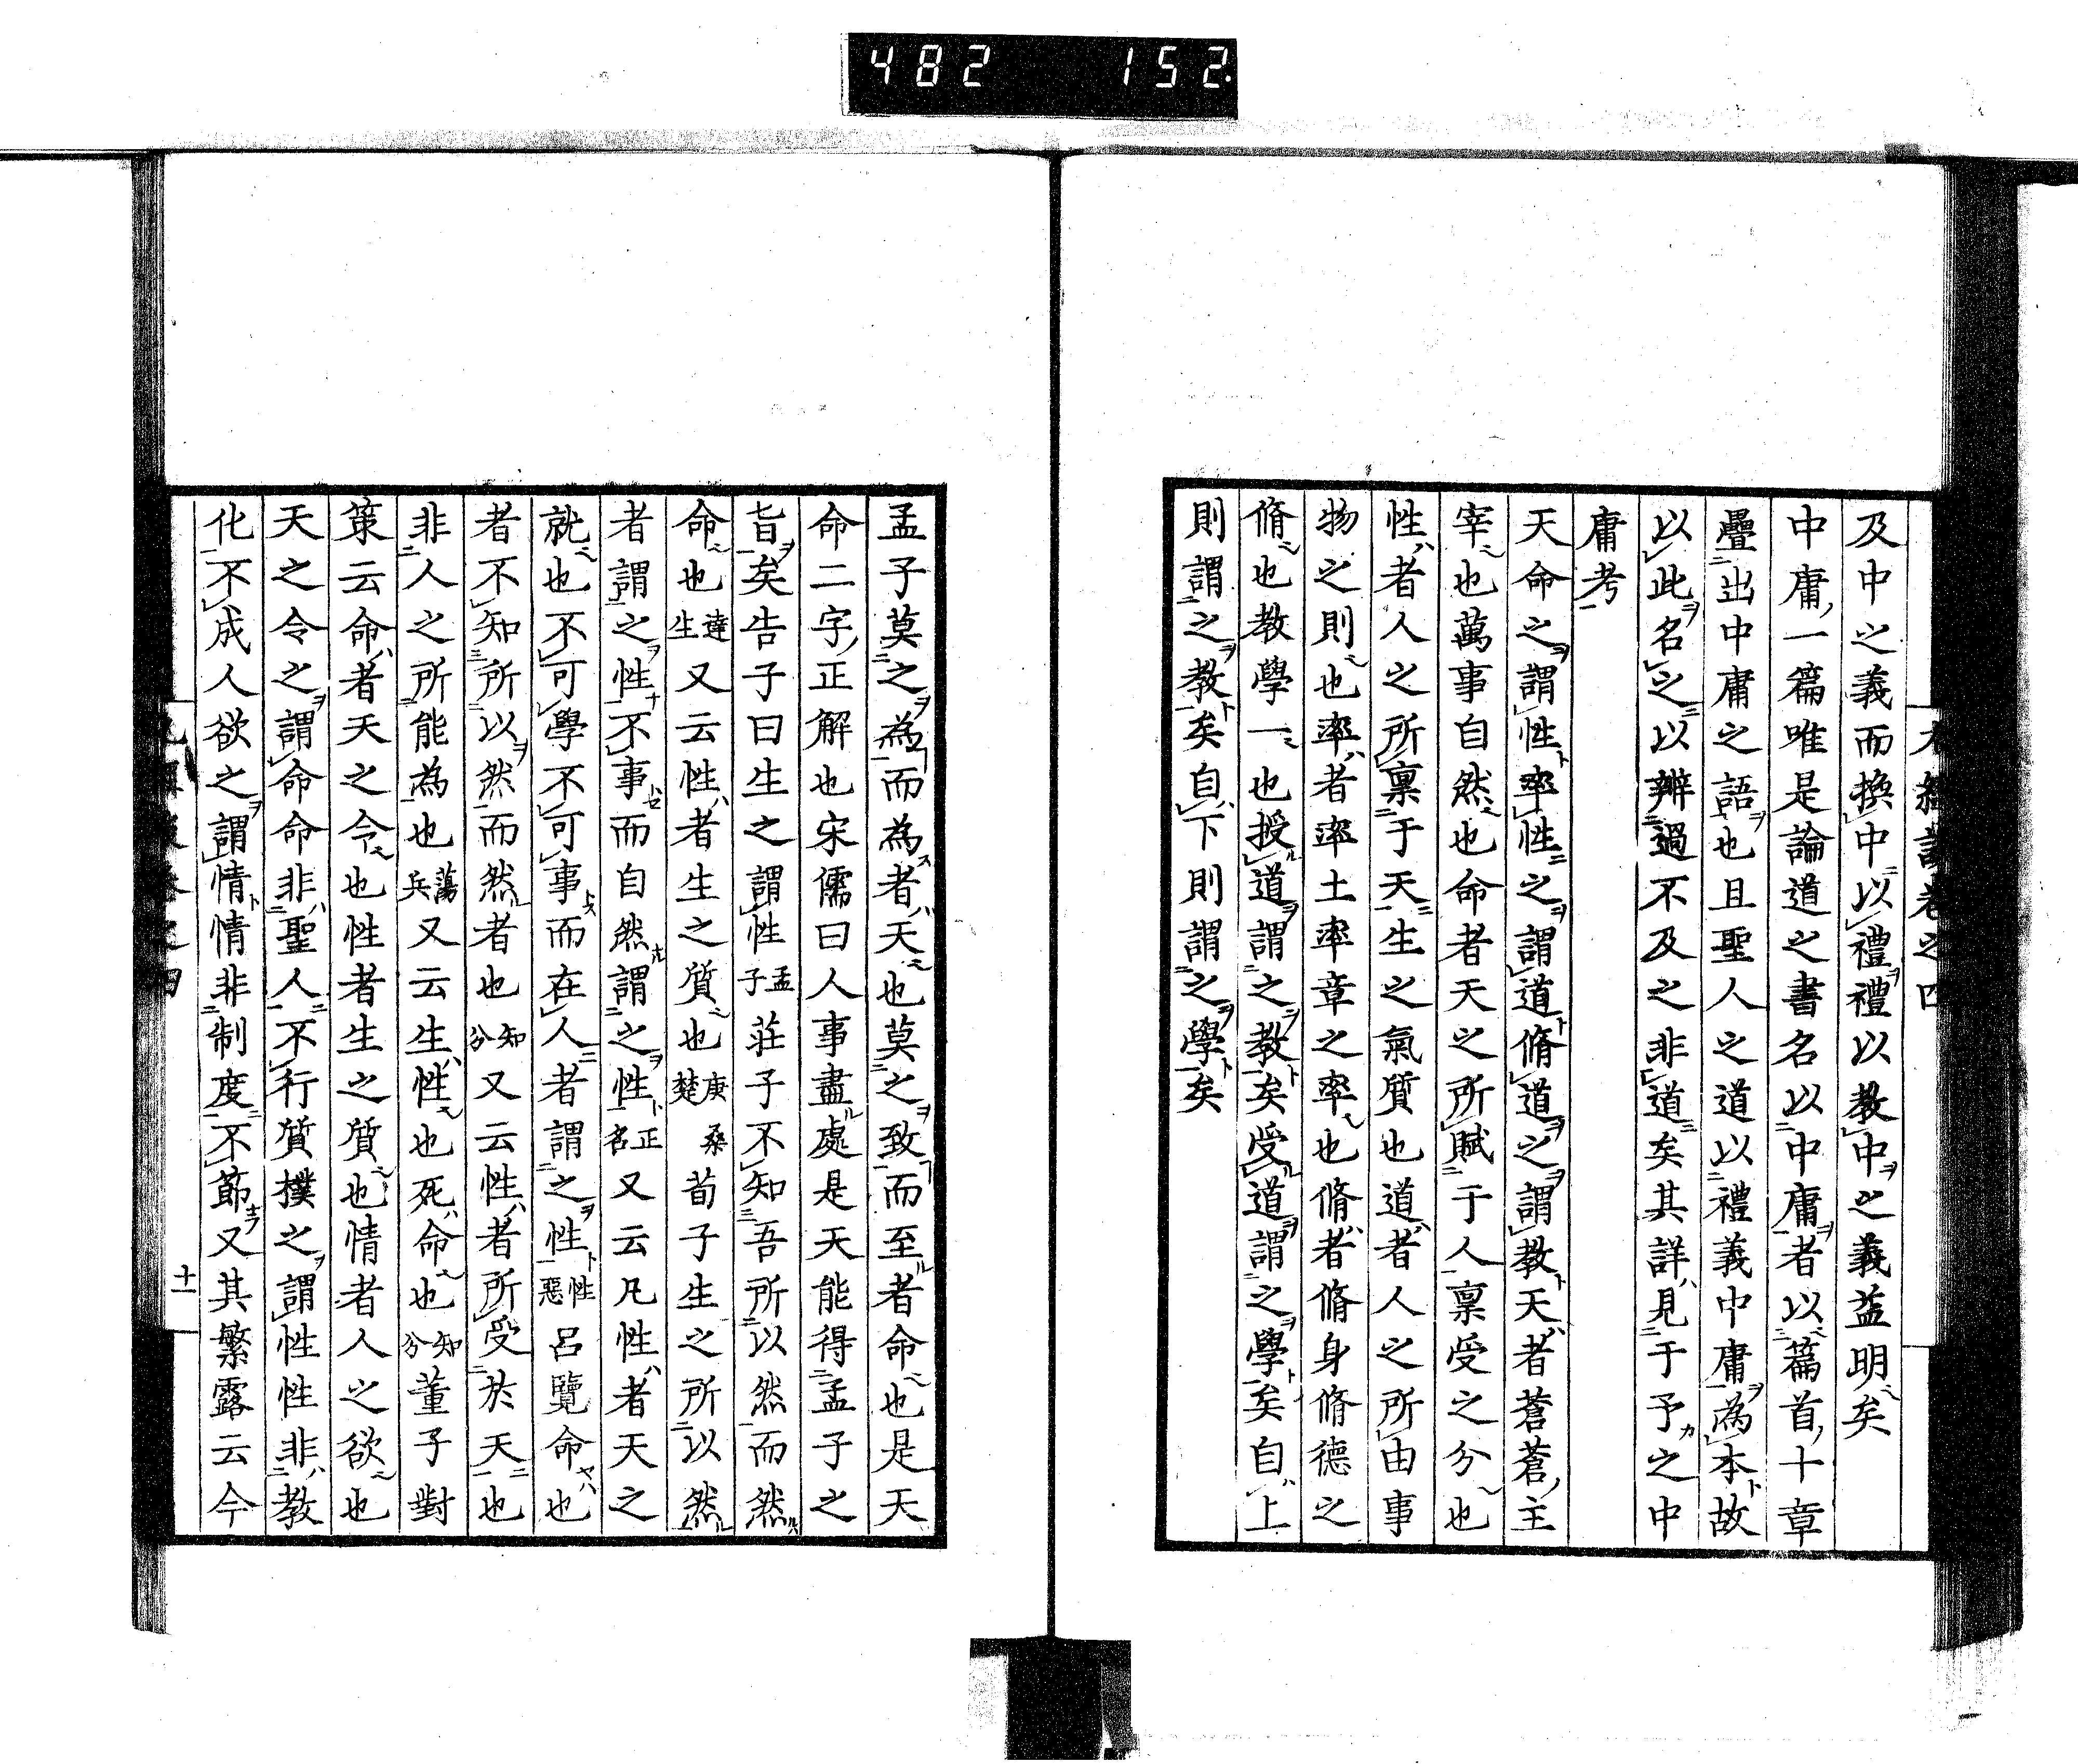 482 152
及中之義而換中以禮禮以教中之義益明矣
中庸一篇唯是論道之書名以中庸者以篇首十章
疊出中庸之語也且聖人之道以禮義中庸為本故
以此名之以辨過不及之非道矣其詳見于予之中
庸考
天命之謂性率性之謂道脩道之謂教天者蒼蒼主
宰也萬事自然也命者天之所賦于人稟受之分也
性者人之所稟于天生之氣質也道者人之所由事
物之則也率者率土率章之率也脩者脩身脩德之
脩也教學一也授道謂之教矣受道謂之學矣自上
則謂之教矣自下則謂之學矣
孟子莫之為而為者天也莫之致而至者命也是天
命二字正解也宋儒曰人事盡處是天能得孟子之
旨矣告子曰生之謂性孟子莊子不知吾所以然而然
命也達生又云性者生之質也庚桑楚荀子生之所以然
者謂之性不事而自然謂之性正名又云凡性者天之
就也不可學不可事而在人者謂之性性惡呂覽命也
者不知所以然而然者也知分又云性者所受於天也
非人之所能為也蕩兵又云生性也死命也知分董子對
策云命者天之令也性者生之質也情者人之欲也
天之令之謂命命非聖人不行質樸之謂性性非教
化不成人欲之謂情情非制度不節又其繁露云今
十一